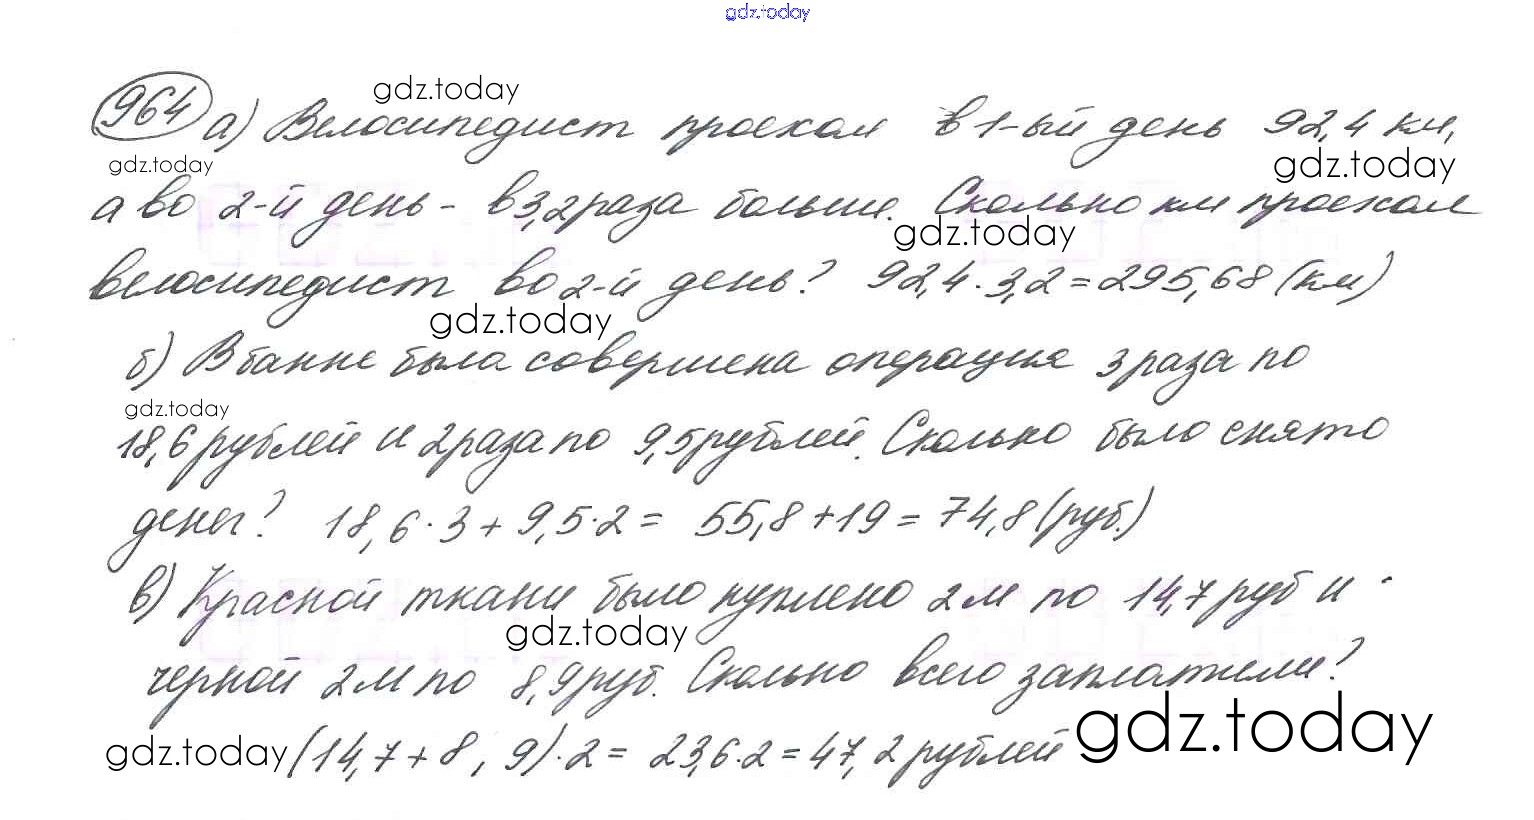 gdz.today
964 а) Велосипедист проехал в 1-ый день 92,4 км,
gdz.today
gdz.today
gdz.today
а во 2-й день - в 3,2 раза больше. Сколько км проехал
gdz.today
велосипедист во 2-й день? 92,4 · 3,2 = 295,68 (км)
gdz.today
б) В банке была совершена операция 3 раза по
gdz.today
18,6 рублей и 2 раза по 9,5 рублей. Сколько было снято
денег? 18,6 · 3 + 9,5 · 2 = 55,8 + 19 = 74,8 (руб.)
в) Красной ткани было куплено 2 м по 14,7 руб и
gdz.today
черной 2 м по 8,9 руб. Сколько всего заплатили?
gdz.today
gdz.today (14,7 + 8,9) · 2 = 23,6 · 2 = 47,2 рублей